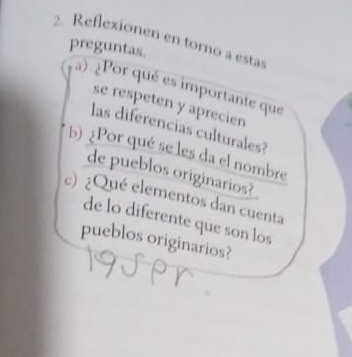 2. Reflexionen en torno a estas
preguntas.
a) ¿Por qué es importante que
se respeten y aprecien
las diferencias culturales?
b) ¿Por qué se les da el nombre
de pueblos originarios?
c) ¿Qué elementos dan cuenta
de lo diferente que son los
pueblos originarios?